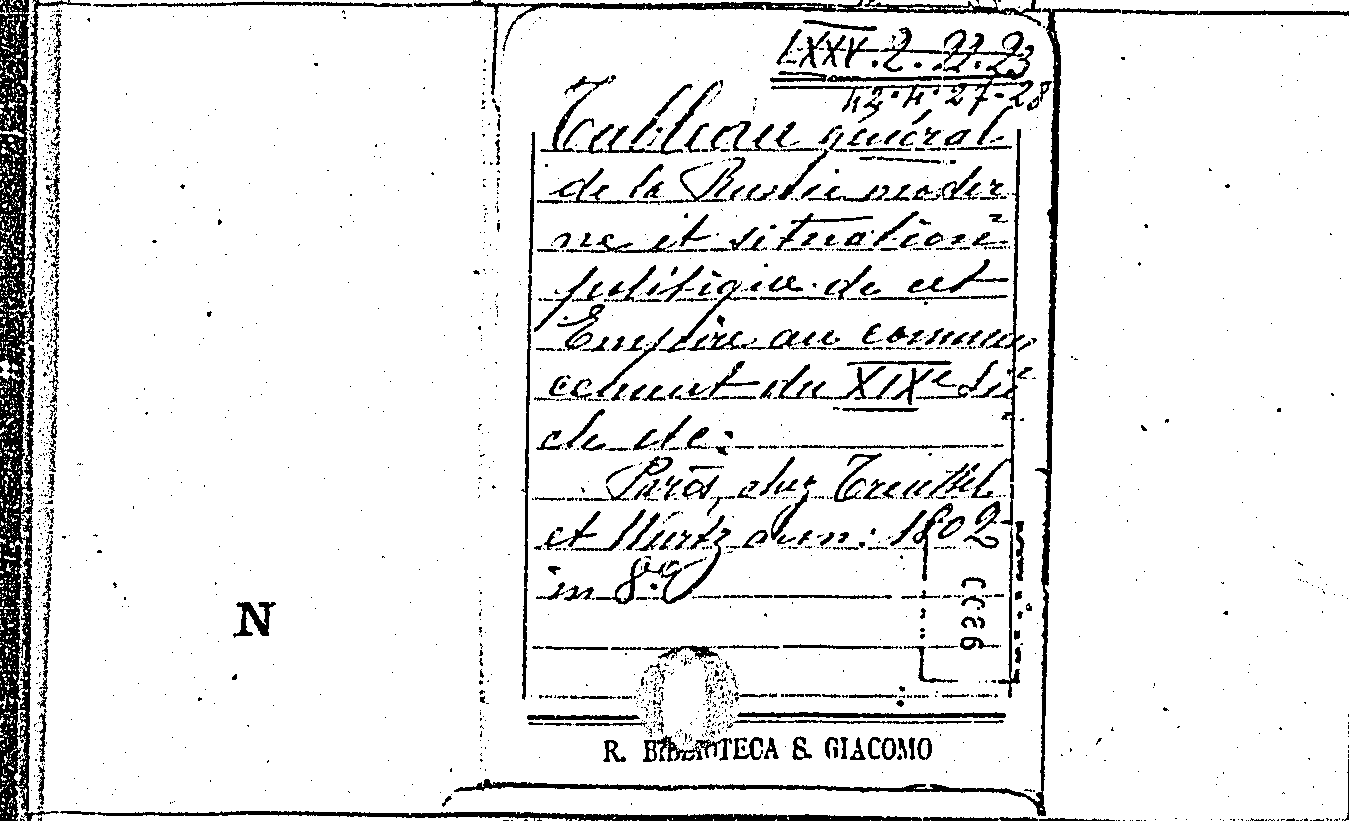 LXXV.2.22.23
42.4.27-28
Tableau général
de la Russie moder
ne et situation
politique de cet
Empire au commen
cement du XIXe Siè
cle etc:
Paris, chez Treuttel
et Würtz ann: 1802
in 8.º
N
R. BIBLIOTECA S. GIACOMO